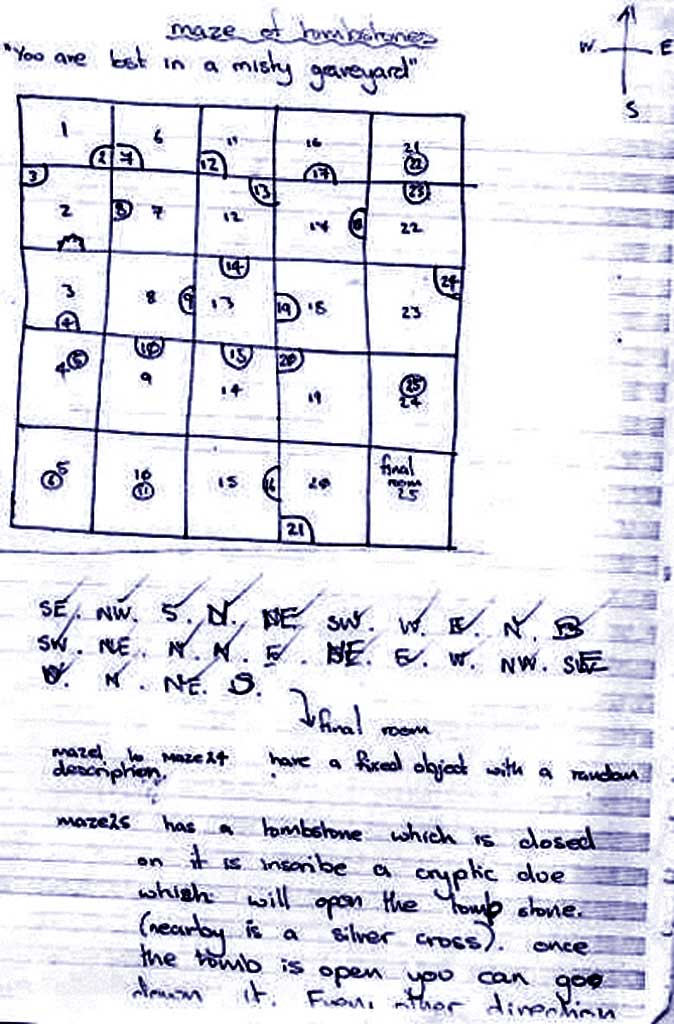 maze of tombstones
W E
S
"You are lost in a misty graveyard"
1 6 11 16 21
2 7 12 17 22
3 13 23
2 7 12 17 22
8 8
14 24
3 8 13 18 23
9 19
4
5 10 15 20 25
4 9 14 19 24
5 10 15 20 final
room
6 11 16 25
21
SE. NW. S. N. NE SW. W. E. N.
SW. NE. N. N. E. NE. E. W. NW. SE
N. NE. S.
final room
maze1 to maze24 have a fixed object with a random
description.
maze25 has a tombstone which is closed
on it is inscribe a cryptic clue
which will open the tomb stone.
(nearby is a silver cross). once
the tomb is open you can go
down it. other direction